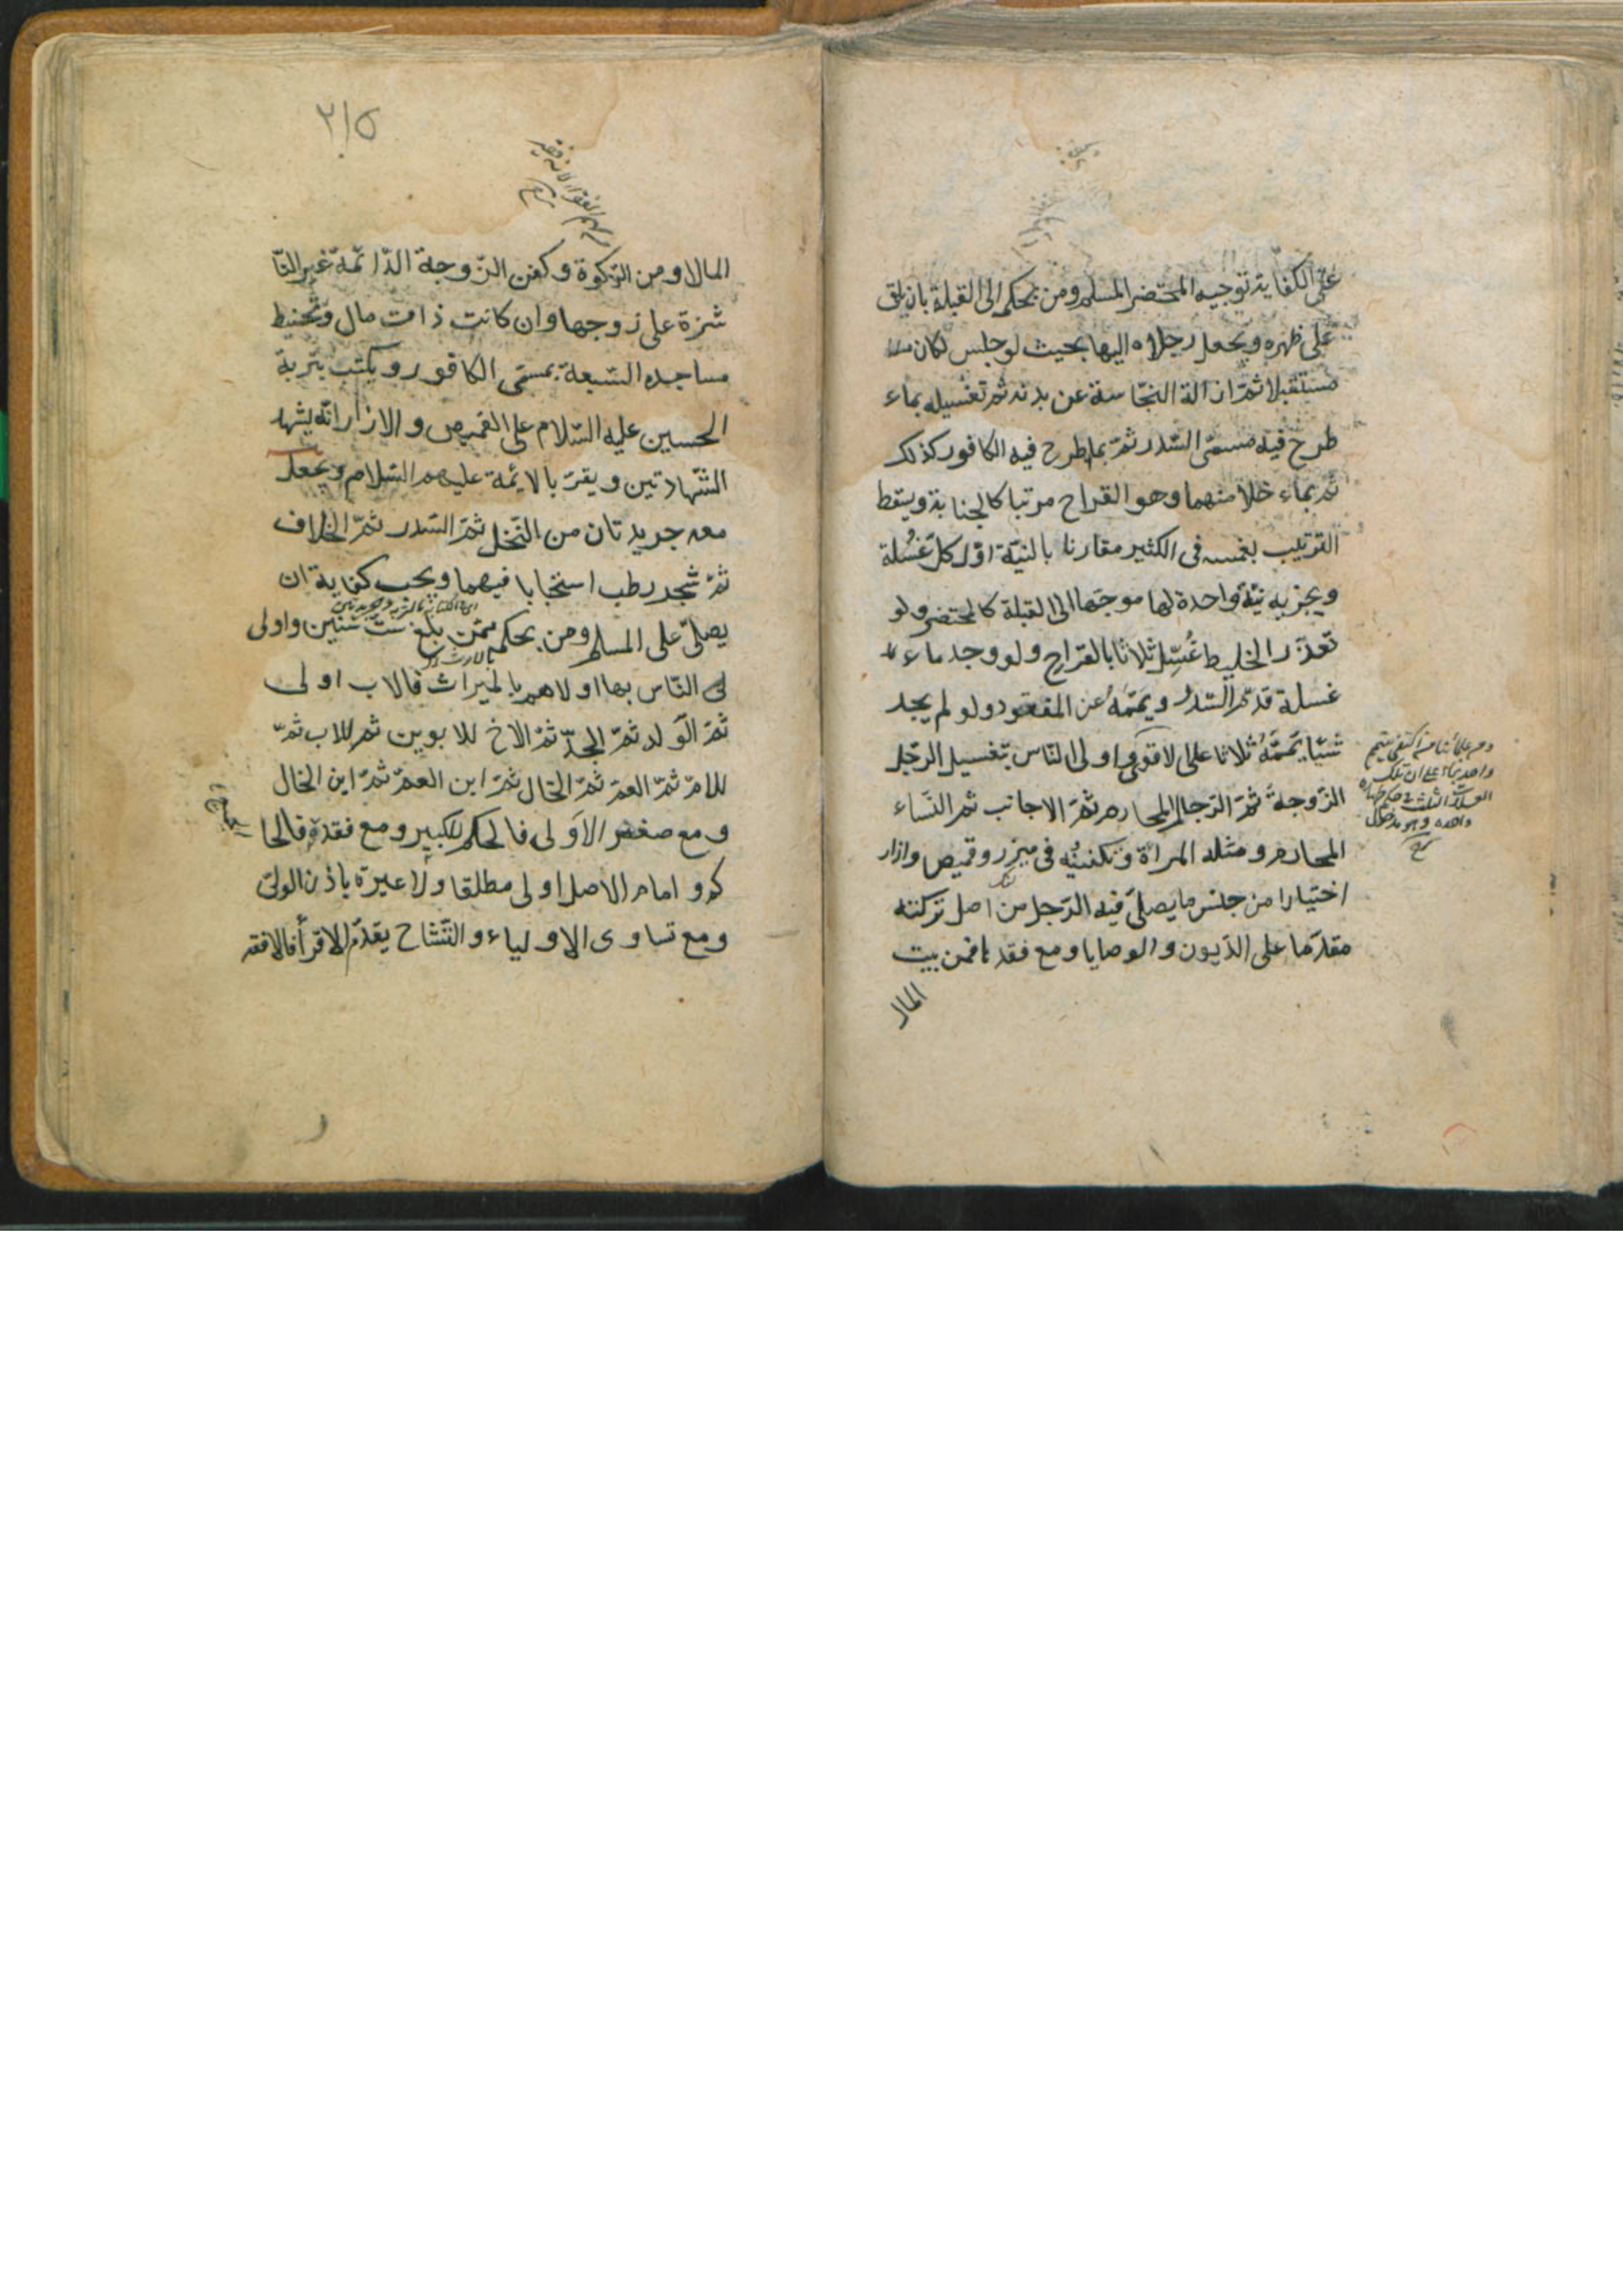 على الكفاية توجيه المحتضر المسلم ومن بحكمه الى القبلة بان يلقى
على ظهره ويجعل رجلاه اليها بحيث لو جلس لكان
مستقبلا ثمّ ازالة النجّاسة عن بدنه ثم تغسيله بماء
طرح فيه مسمّى السّدر ثمّ بما طرح فيه الكافور كذلك
ثم بماء خلا منهما وهو القراح مرتبا كالجنابة ويسقط
الترتيب بغمسه فى الكثير مقارنا بالنيّة اوّل كلّ غسُلة
ويجزيه نيّة واحدة لها موجّها الى القبلة كالمحتضر ولو
تعذّر الخليط غُسِّل ثلاثا بالقراح ولو وجد ماء
غسلة قدّم السّدرُ ويمّمهُ عن المفقود ولو لم يجد
شيئا يمّمَهُ ثلاثا على الاقوى واولى النّاس بتغسيل الرّجل
الزّوجةُ ثمّ الرّجال المحارم ثمّ الاجانب ثم النّساء
المحارم ومثله المراة وتكفينُه فى ميزر وقميص وازار
اختيارا من جنس ما يصلّى فيه الرّجل من اصل تركته
مقدّما على الدّيون والوصايا ومع فقدها فمن بيت
المال
٢١٥
المال او من الزّكوة وكفن الزّوجة الدّائمة غير النّا
شزة على زوجها وان كانت ذات مال وتحنيط
مساجده السّبعة بمسمّى الكافور ويكتب بتربة
الحسين عليه السّلام على القميص والازار انّه يشهد
الشّهادتين ويقرّ بالائمة عليهم السّلام ويجعل
معه جريدتان من النّخل ثمّ السّدر ثمّ الخلاف
ثمّ شجر رطب استحبابا فيهما ويجب كفاية ان
يصلّى على المسلم ومن بحكمه ممّن بلغ ستّ سنين واولى
النّاس بها اولاهم بالميراث فالاب اولى
ثمّ الوَلد ثمّ الجدّ ثمّ الاخ للابوين ثم للاب ثمّ
للامّ ثمّ العمّ ثمّ الخال ثمّ ابن العمّ ثمّ ابن الخال
ومع صغر الاَولى فالحكم للكبير ومع فقده فالحا
كم و امام الاصل اولى مطلقا ولا غيره باذن الولىّ
ومع تساوى الاولياء والتّشاح يقدّم الاقرأ فالافقه